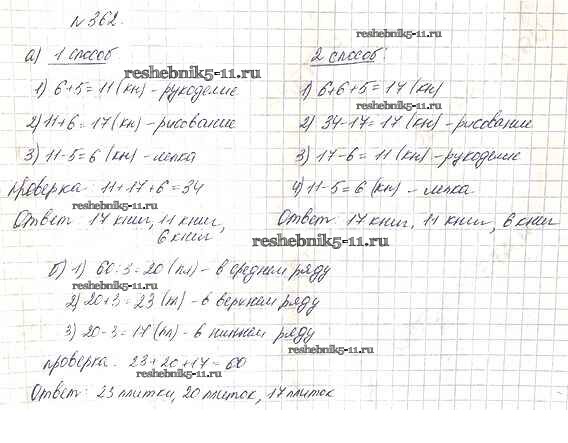 №362.
reshebnik5-11.ru
а) 1 способ
2 способ
reshebnik5-11.ru
1) 6+5=11 (кн) - рукоделие
1) 6+6+5=17 (кн)
reshebnik5-11.ru
2) 11+6=17 (кн) - рисование
2) 34-17=17 (кн) - рисование
3) 11-5=6 (кн) - лепка
3) 17-6=11 (кн) - рукоделие
проверка: 11+17+6=34
4) 11-5=6 (кн) - лепка
reshebnik5-11.ru
Ответ: 17 книг, 11 книг,
6 книг
Ответ: 17 книг, 11 книг, 6 книг
reshebnik5-11.ru
б) 1) 60:3=20 (пл) - в среднем ряду
2) 20+3=23 (пл) - в верхнем ряду
3) 20-3=17 (пл) - в нижнем ряду
reshebnik5-11.ru
проверка: 23+20+17=60
reshebnik5-11.ru
Ответ: 23 плитки, 20 плиток, 17 плиток